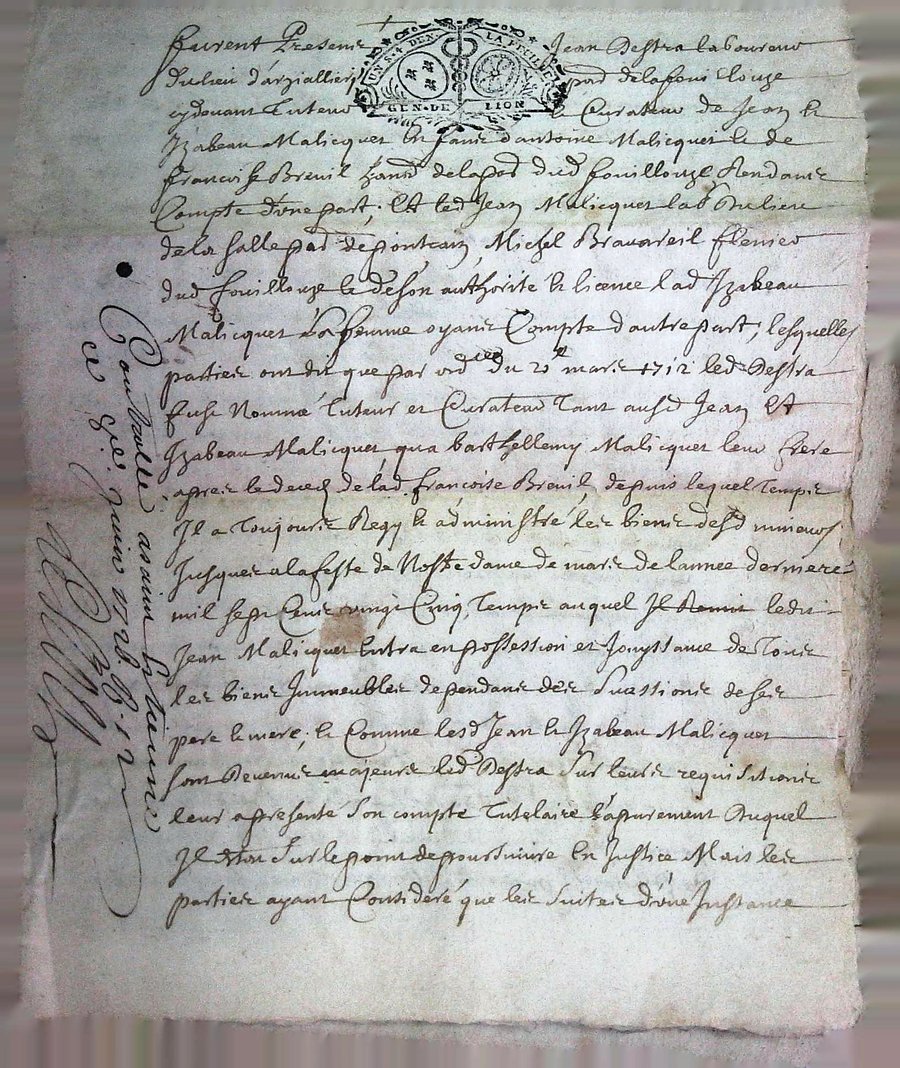 UN S. 4 DEN. LA FEUILLE
GEN. DE LION
furent Presens Jean Destra laboureur
du lieu d'arzallier par delafouillouze
cydevant tuteur & Curateur de Jean &
Izabeau Malicquet enfans d'antoine Malicquet & de
francoise Breuil habitans de la par dud fouillouze Rendant
Compte d'une part, Et led Jean Malicquet lab
de la salle par Michel fermier
dud fouillouze & de son authorité & licence lad Izabeau
Malicquet sa femme oyant Compte d'autre part, lesquelles
parties ont dit que par ord du 21 mars 1712 led Destra
fust Nommé tuteur et Curateur tant ausd Jean Et
Izabeau Malicquet qua barthellemy Malicquet leur frere
apres le deces de lad francoise Breuil, depuis lequel temps
Il a toujours Regy & administré les biens desd mineurs
Jusques a la feste de Nostre dame de mars de lannee derniere
mil sept Cens vingt Cinq, temps auquel Il Remit ledit
Jean Malicquet Entra en possession et Jouyssance de tous
les biens Immeubles dependans des Suctions de ses
pere & mere, & Comme lesd Jean & Izabeau Malicquet
sont devenus majeurs led Destra sur leurs requisitions
leur a presenté son compte tutelaire & apurement duquel
Il estoit sur le point de poursuivre En Justice Mais les
parties ayant Consideré que les suites d'une Instance
Controllé a saint Estienne
ce juin 1726 12